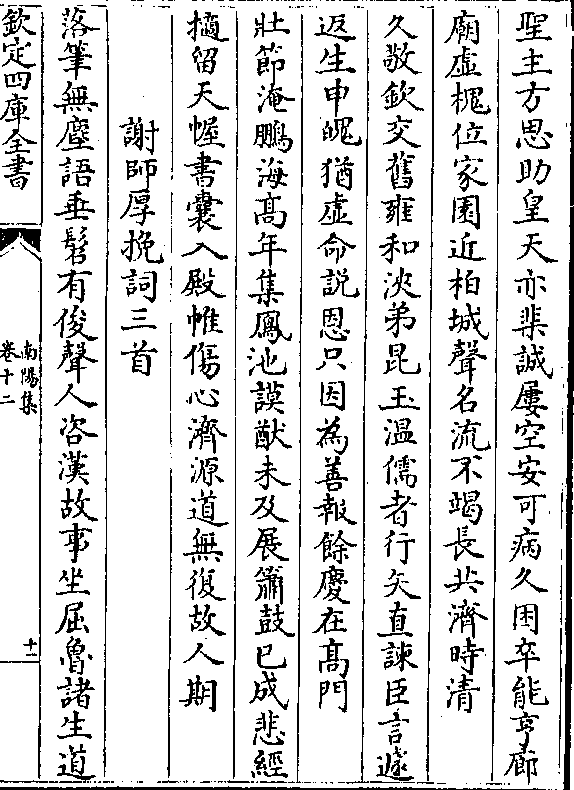 聖主方思助皇天亦棐誠屢空安可病久困卒能亨廊
廟虛槐位家園近柏城聲名流不竭長共濟時清
久敬欽交舊雍和浹弟昆玉溫儒者行矢直諫臣言遽
返生申魄猶虛命説恩只因為善報餘慶在髙門
壯節淹鵬海髙年集鳳池謨猷未及展簫鼓已成悲經
擿留天幄書囊入殿帷傷心濟源道無復故人期
謝師厚挽詞三首
落筆無塵語垂髫有俊聲人咨漢故事坐屈魯諸生道
欽定四庫全書
南陽集
卷十二
十一